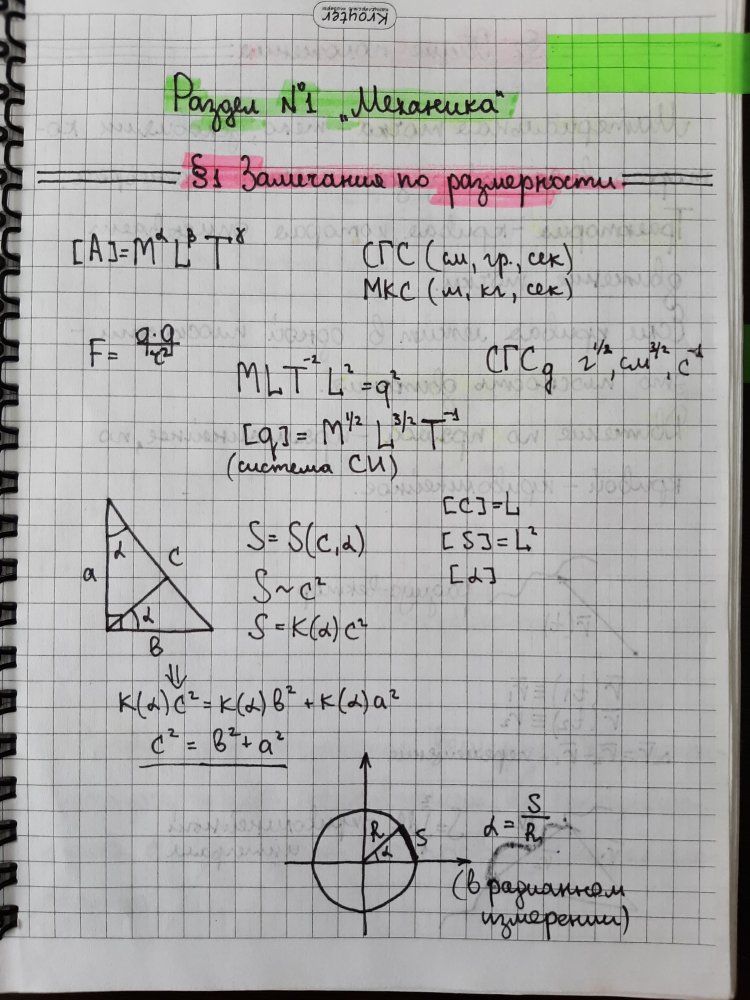 Krouter
Раздел №1 „Механика"
§1 Замечания по размерности
[A]=M^α L^β T^γ
СГС (см, гр., сек)
МКС (м, кг, сек)
F = q·q/r²
MLT⁻² L² = q²
СГС_q г^1/2, см^3/2, с⁻¹
[q] = M^1/2 L^3/2 T⁻¹
(система СИ)
[C]=L
[S]=L²
[α]
a
α
C
α
B
S = S(c,α)
S ~ c²
S = K(α)c²
⇓
K(α)c² = K(α)b² + K(α)a²
c² = b² + a²
R
α
S
α = S/R
(в радианном
измерении)